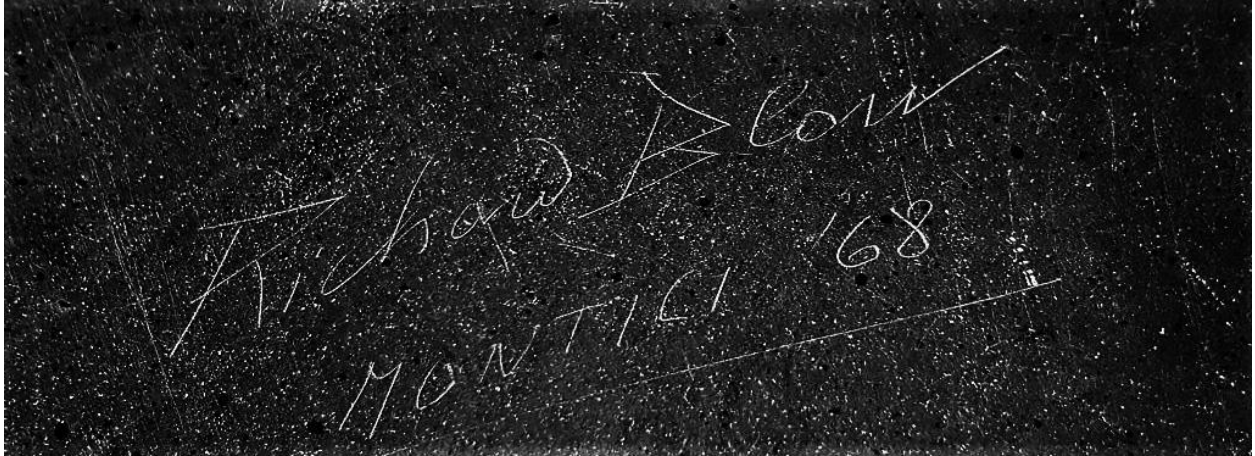 Richard Blow
MONTICI '68